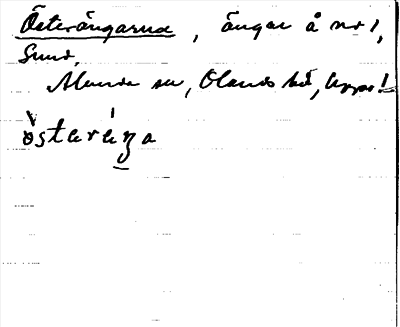 Österängarna, ängar å nr 1,
Sund.
Alunda sn, Olands hd, Uppl.
ö̀steráŋa